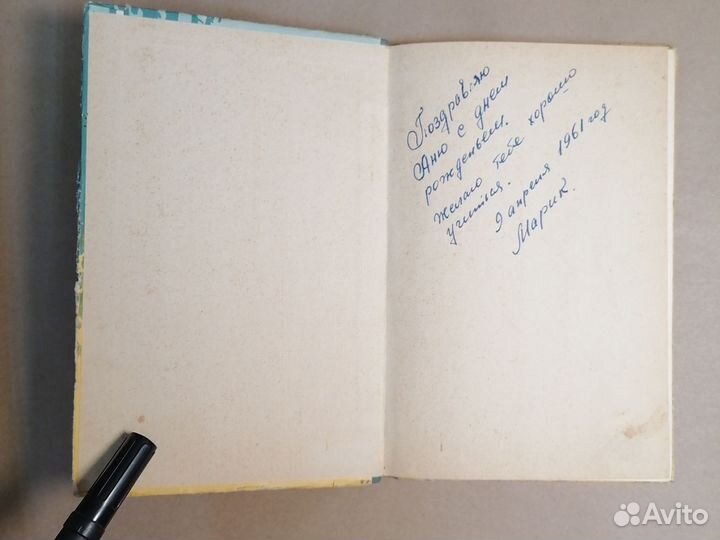 Поздравляю
Аню с днем
рожденьем.
Желаю тебе хорошо
учиться.
9 апреля 1961 год
Марик.
Avito